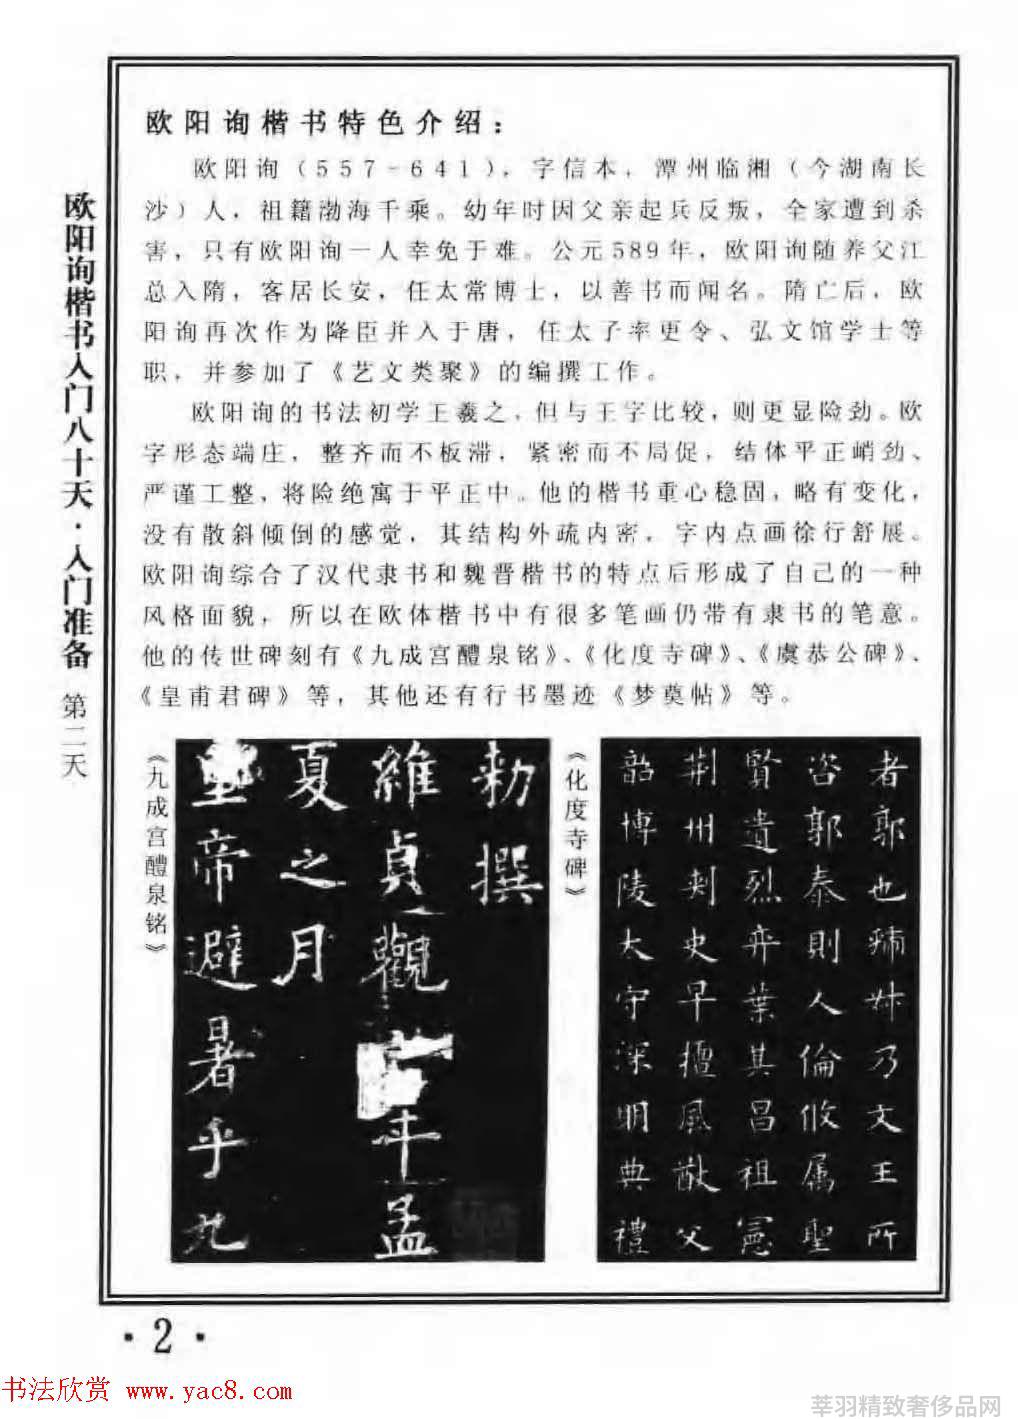 欧阳询楷书特色介绍：
欧阳询（557-641），字信本，潭州临湘（今湖南长
沙）人，祖籍渤海千乘。幼年时因父亲起兵反叛，全家遭到杀
害，只有欧阳询一人幸免于难。公元589年，欧阳询随养父江
总入隋，客居长安，任太常博士，以善书而闻名。隋亡后，欧
阳询再次作为降臣并入于唐，任太子率更令、弘文馆学士等
职，并参加了《艺文类聚》的编撰工作。
欧阳询的书法初学王羲之，但与王字比较，则更显险劲。欧
字形态端庄，整齐而不板滞，紧密而不局促，结体平正峭劲、
严谨工整，将险绝寓于平正中。他的楷书重心稳固，略有变化，
没有散斜倾倒的感觉，其结构外疏内密，字内点画徐行舒展。
欧阳询综合了汉代隶书和魏晋楷书的特点后形成了自己的一种
风格面貌，所以在欧体楷书中有很多笔画仍带有隶书的笔意。
他的传世碑刻有《九成宫醴泉铭》、《化度寺碑》、《虞恭公碑》、
《皇甫君碑》等，其他还有行书墨迹《梦奠帖》等。
欧阳询楷书入门八十天·入门准备 第二天
《九成宫醴泉铭》
勑撰
維貞觀六年孟
夏之月
皇帝避暑乎九
《化度寺碑》
者郭也虢叔乃文王所
咨郭泰則人倫攸属聖
賢遺烈弈葉其昌祖憲
荆州刺史早擅風猷父
韶博陵太守深明典禮
·2·
书法欣赏 www.yac8.com
莘羽精致奢侈品网